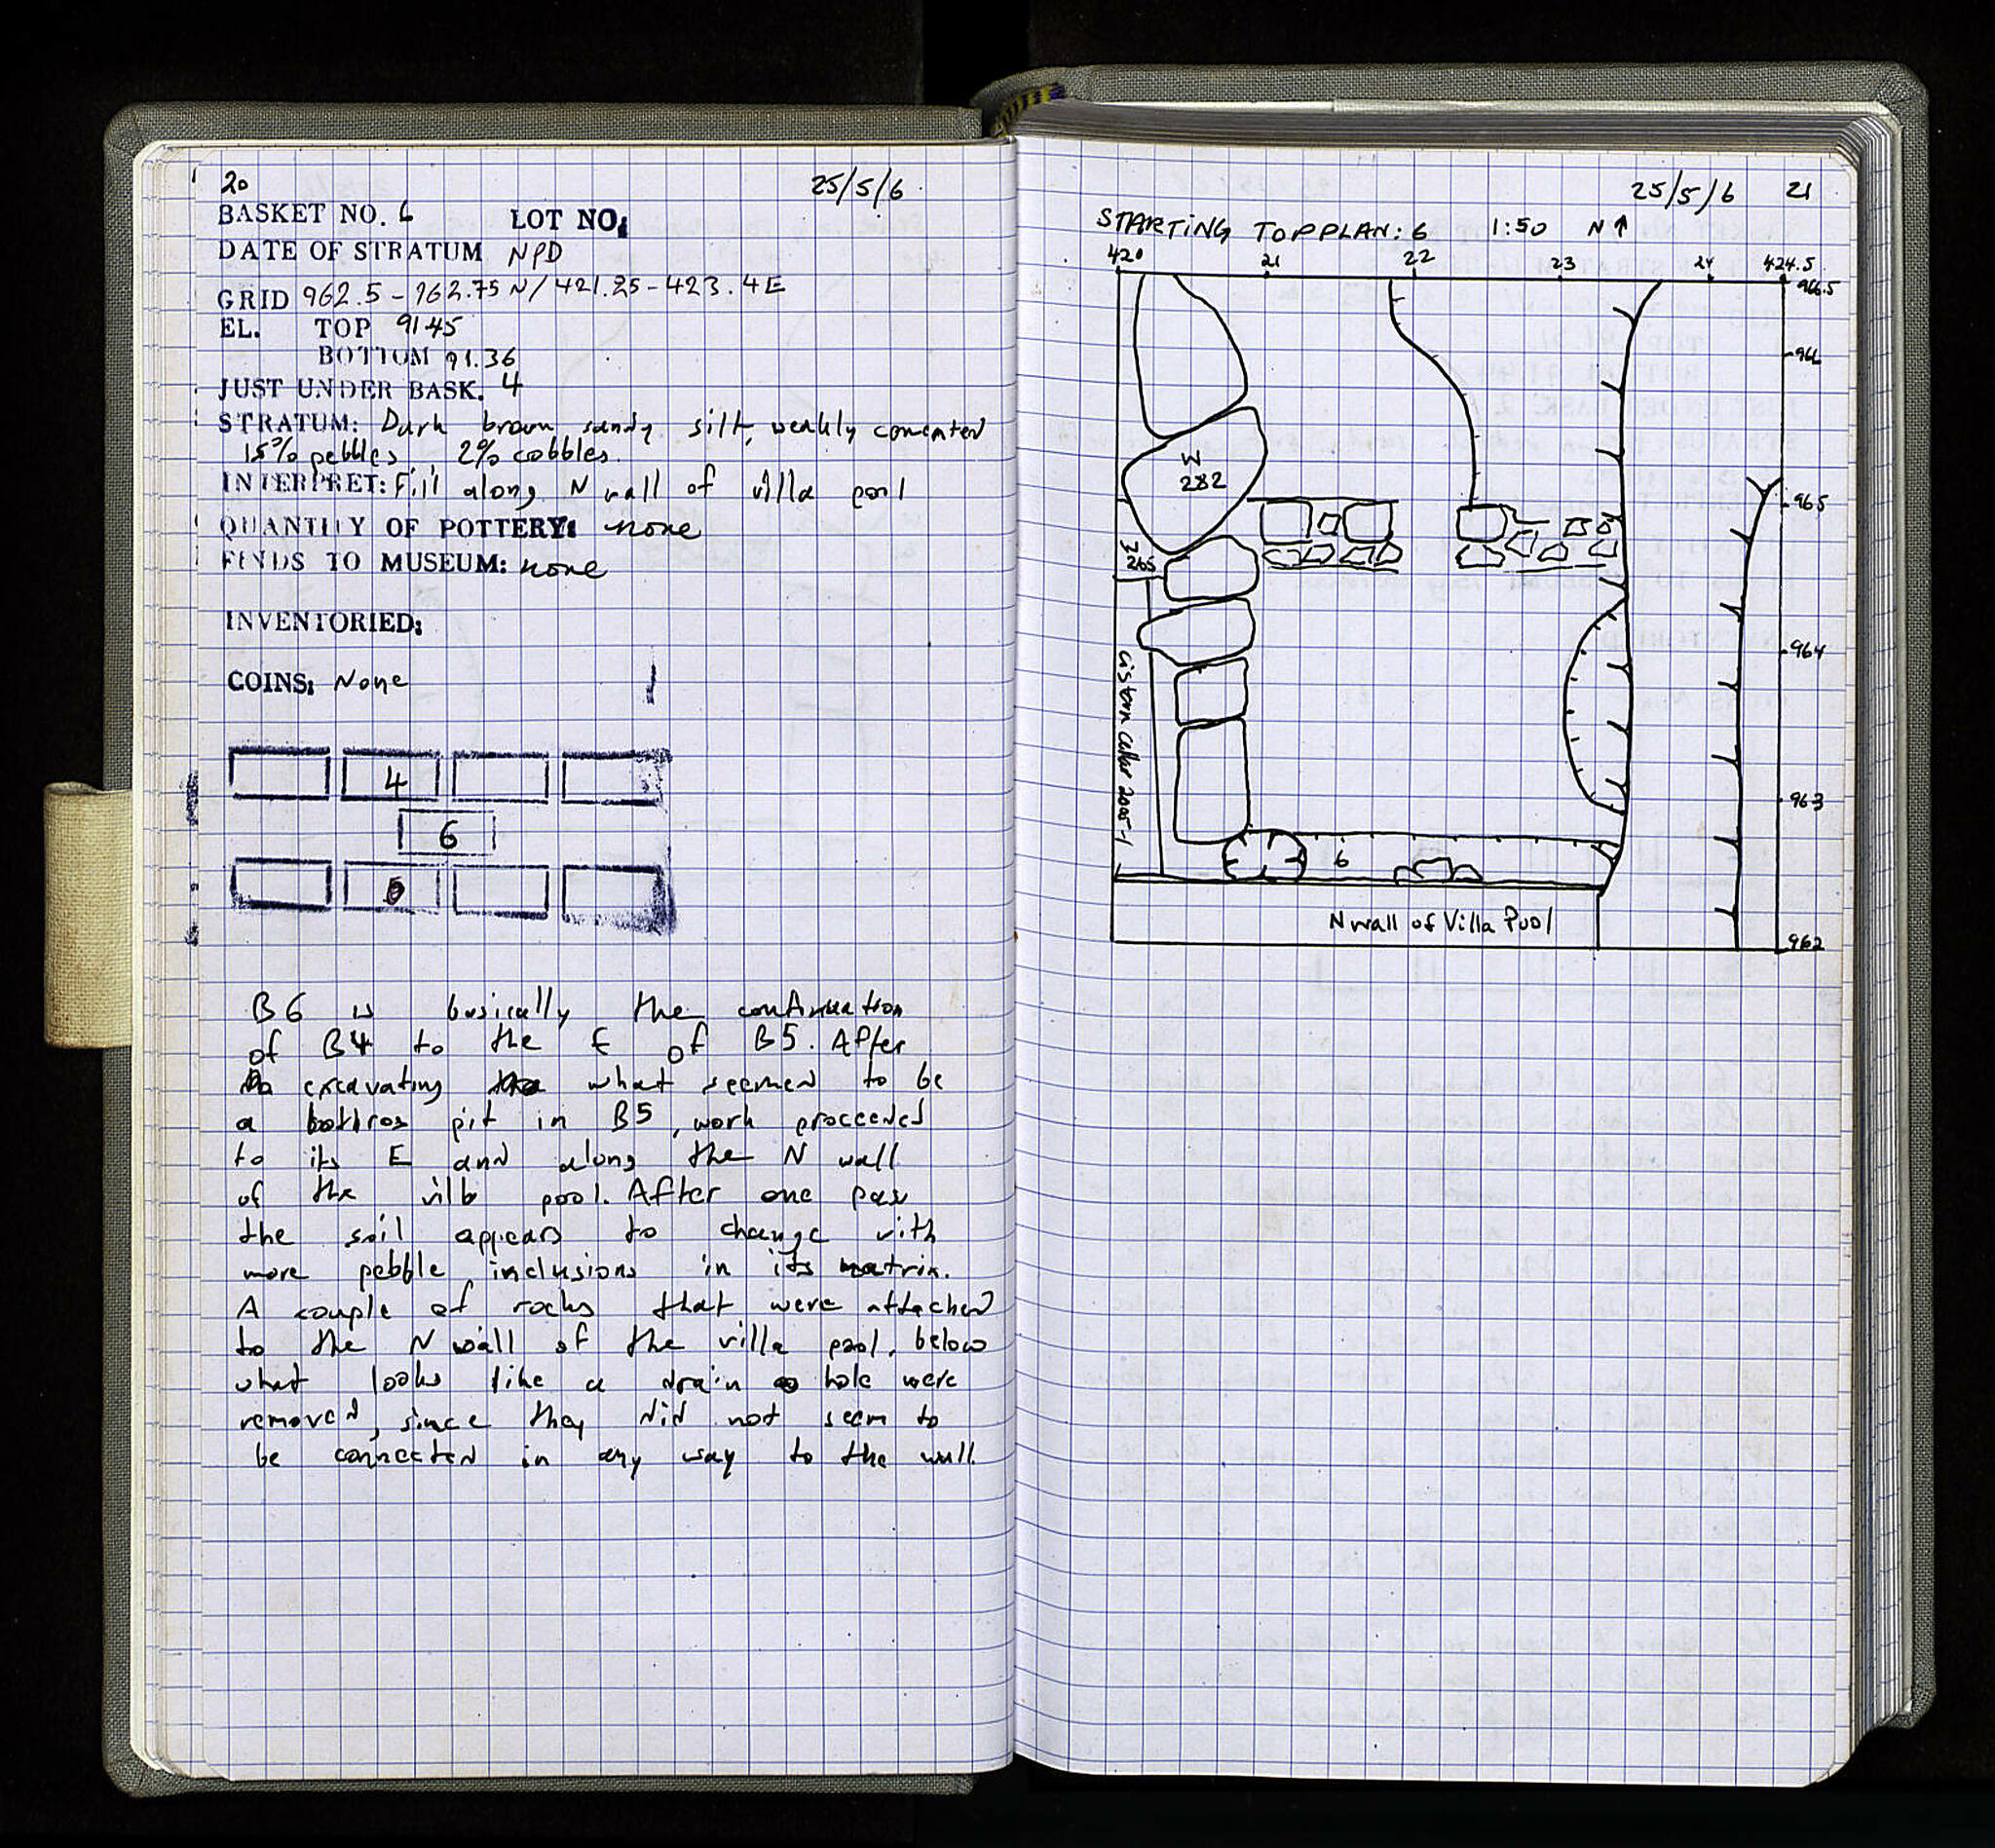 20
25/5/6
BASKET NO. 6 LOT NO:
DATE OF STRATUM NPD
GRID 962.5 - 962.75 N / 421.25 - 423.4 E
EL. TOP 91.45
BOTTOM 91.36
JUST UNDER BASK. 4
STRATUM: Dark brown sandy silt, weakly cemented
15% pebbles 2% cobbles.
INTERPRET: Fill along N wall of villa pool
QUANTITY OF POTTERY: none
FINDS TO MUSEUM: none
INVENTORIED:
COINS: None
4
6
B6 is basically the continuation
of B4 to the E of B5. After
excavating what seemed to be
a bothros pit in B5, work proceeded
to its E and along the N wall
of the villa pool. After one pass
the soil appears to change with
more pebble inclusions in its matrix.
A couple of rocks that were attached
to the N wall of the villa pool, below
what looks like a drain hole were
removed, since they did not seem to
be connected in any way to the wall.
25/5/6 21
STARTING TOPPLAN: 6 1:50 N↑
420 21 22 23 24 424.5
966.5
966
W
282
965
265
964
cistern cellar 2005-1
963
6
N wall of Villa Pool
962